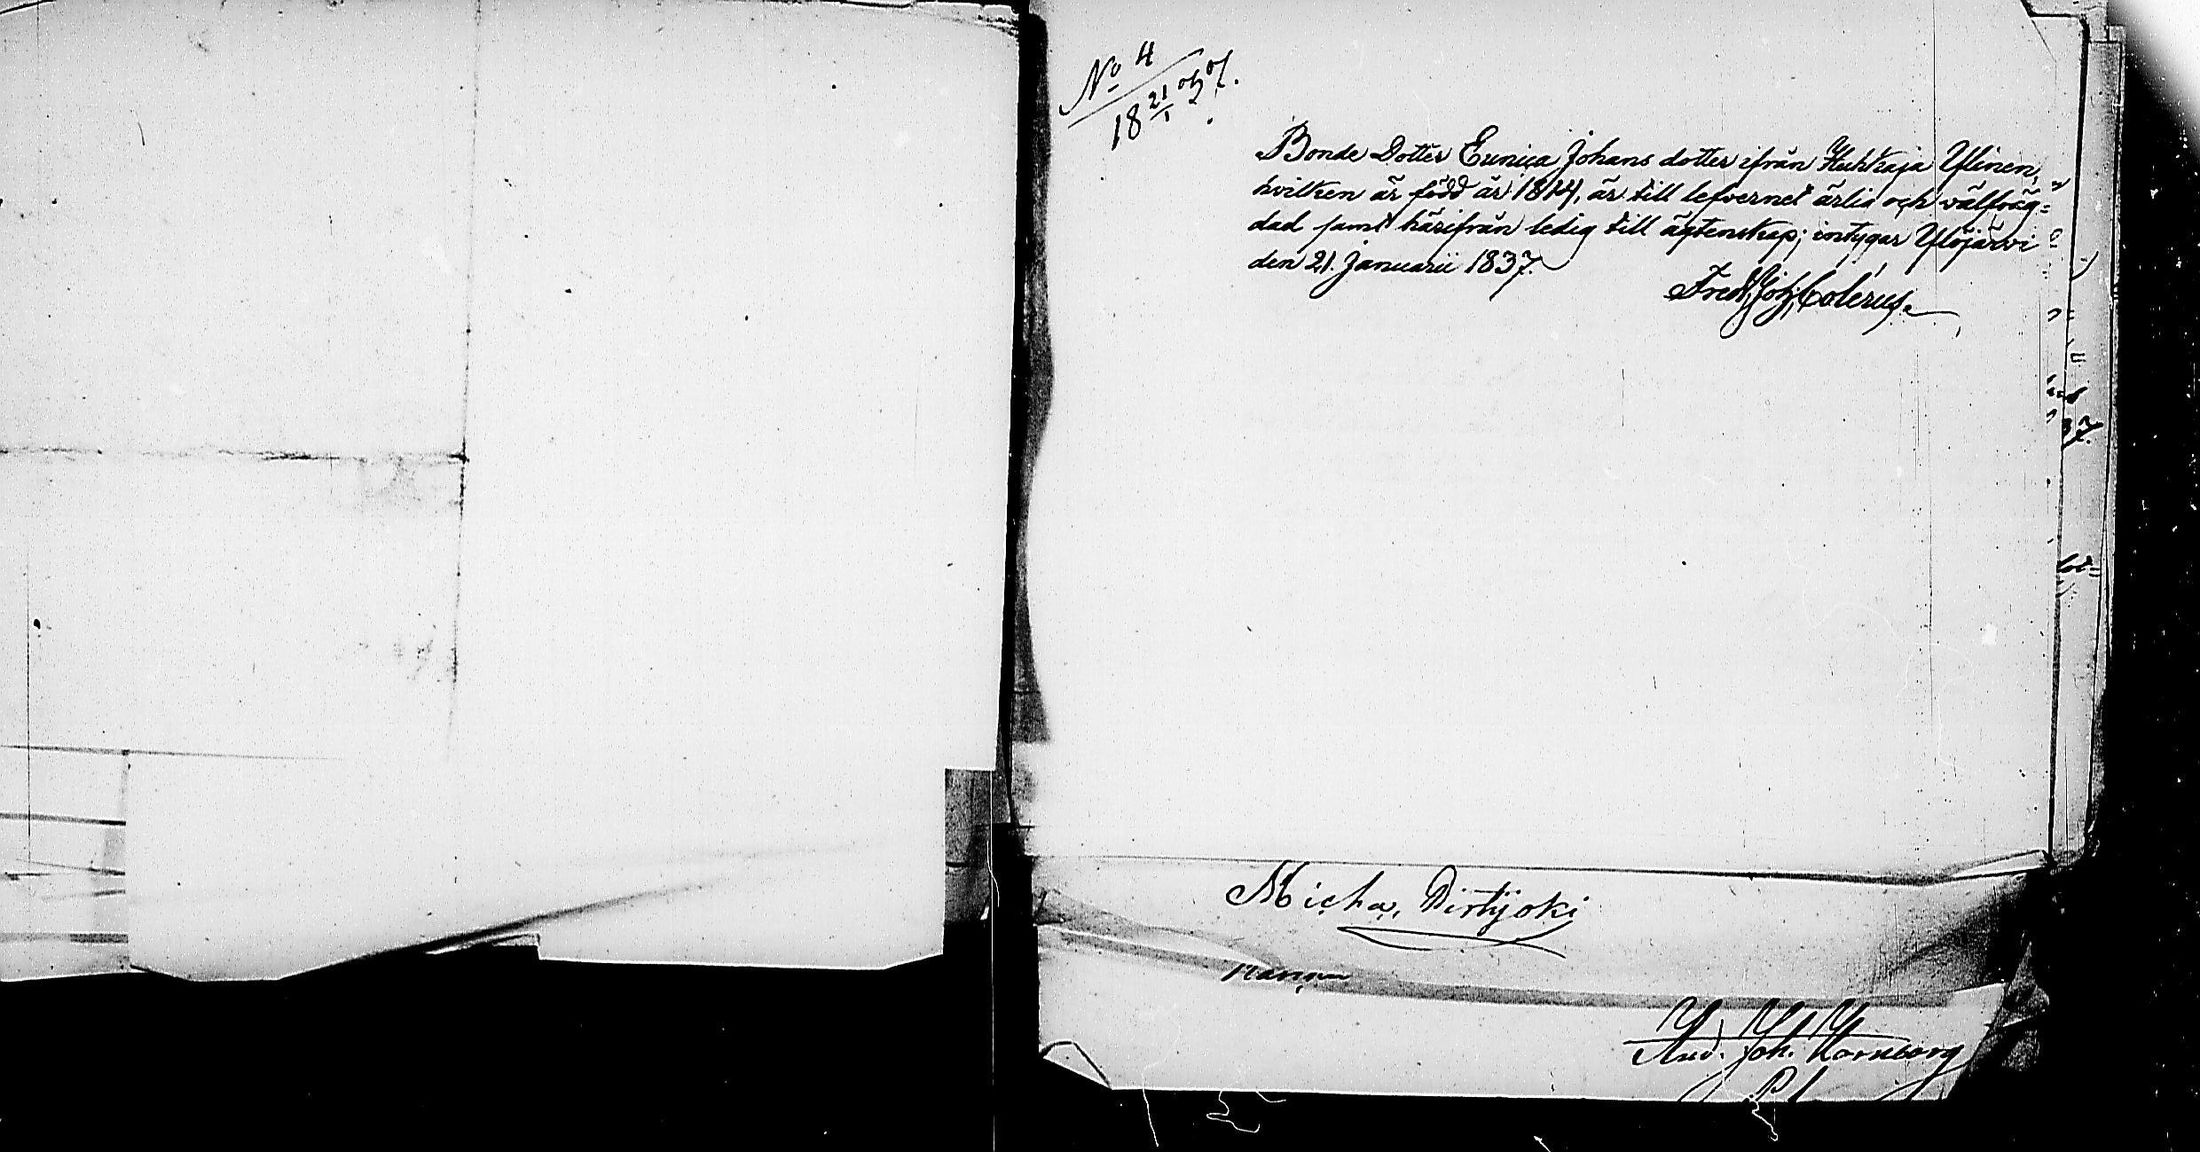 No 4
18 21/1 37.
Bonde Dotter Eunica Johans dotter ifrån Huhkaja Ylinen,
hvilken är född år 1814, är till lefvernet ärlig och välfräg=
dad samt härifrån ledig till ägtenskap; intygar Ylöjärvi
den 21. Januarii 1837.
Fredr. Joh. Colerus.
37.
Micha,
And. Joh. Kornborg